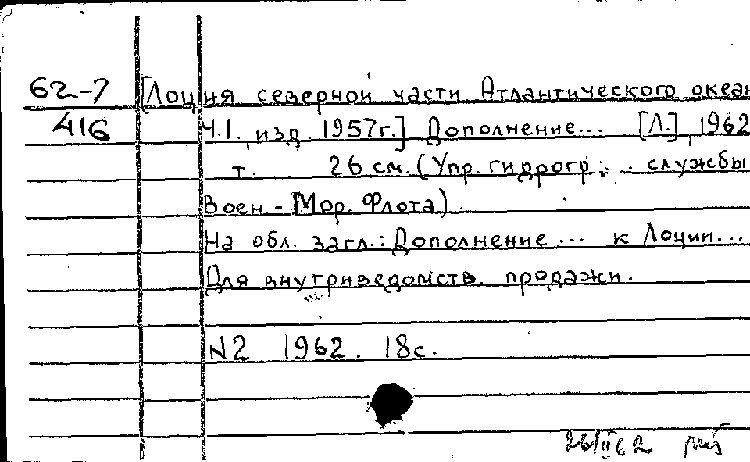 62-7 [Лоция северной части Атлантического океан
416 Ч.I. изд. 1957г.] Дополнение... [Л.], 1962
т. 26 см. (Упр. гидрогр. службы
Воен-Мор. Флота).
На обл. загл.: Дополнение... к Лоции...
Для внутриведомств. продажи.
N2 1962. 18с.